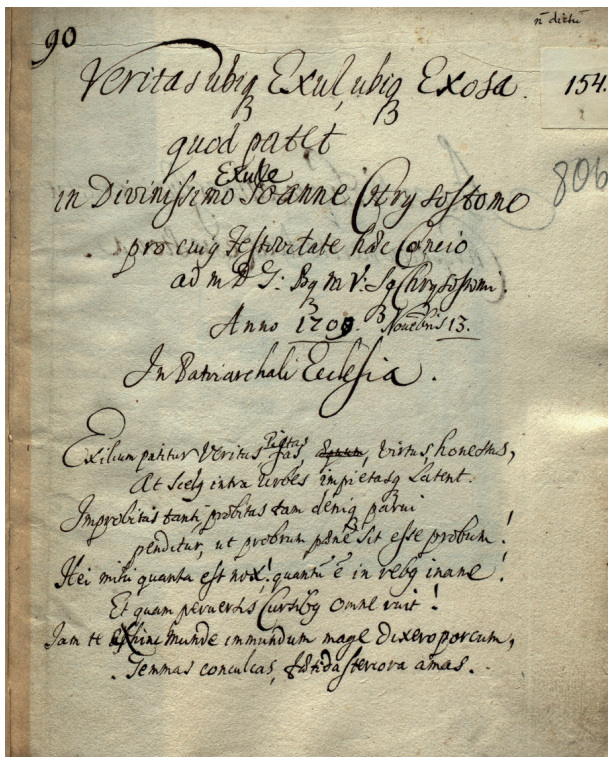 n̄ dictū
90
Veritas ubiq₃ Exul, ubiq₃ Exosa.
154.
quod patet
Exule
in Divinissimo Joanne Chrysostomo
806
pro cuiq Festivitate haec Concio
ad m D G: Bq m V: Sq Chrysostomi.
Anno 1709. Novebris 13.
In Patriarchali Ecclesia.
Pietas
Exilium patitur Veritas fas, virtus, honestas,
At Scelq intra urbes impietasq₃ Latent.
Improbitas tanti probitas tam deniq₃ parvi
penditur, ut probrum pene sit esse probum!
Hei mihi quanta est nox! quantū ē in rebq inane!
Et quam perversis Cursibq omne ruit!
Jam te hinc munde immundum mage dixero porcum,
Gemmas conculcas, foetida stercora amas.